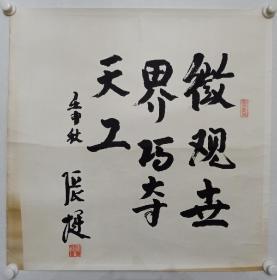 微观世
界巧夺
天工
壬申秋
张楗